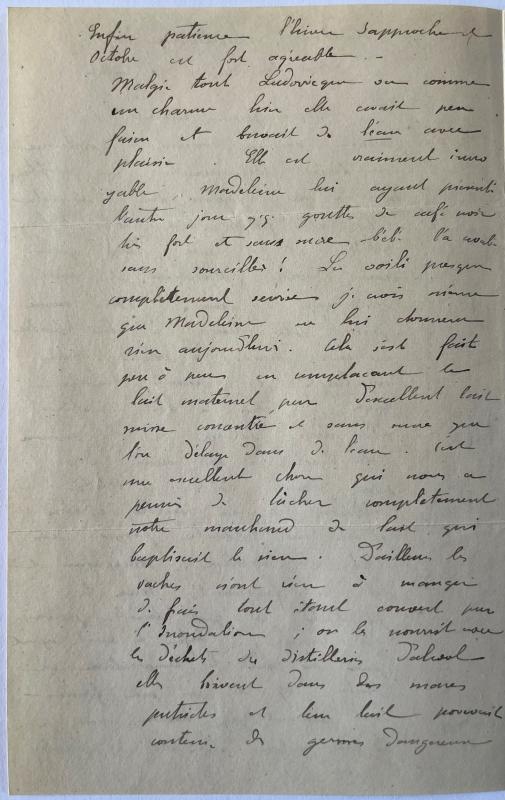 Enfin patience l'hiver s'approche et
Octobre est fort agréable. -
Malgré tout Ludovique va comme
un charme hier elle avait peu
faim et buvait de l'eau avec
plaisir. Elle est vraiment incro
yable. Madeleine lui ayant présenté
l'autre jour qq. gouttes de café noir
très fort et sans sucre bébé l'a avalé
sans sourciller! La voilà presque
complètement sevrée je crois même
que Madeleine ne lui donnera
rien aujourd'hui. Cela s'est fait
peu à peu en remplaçant le
lait maternel par d'excellent lait
suisse concentré et sans sucre que
l'on délaye dans de l'eau. C'est
une excellent chose qui nous a
permis de lâcher complètement
notre marchand de lait qui
baptisait le sien. D'ailleurs les
vaches n'ont rien à manger
de frais tout étant couvert par
l'Inondation ; on les nourrit avec
les déchets des distilleries d'alcool
elles boivent dans des mares
putrides et leur lait pouvait
contenir des germes dangereux